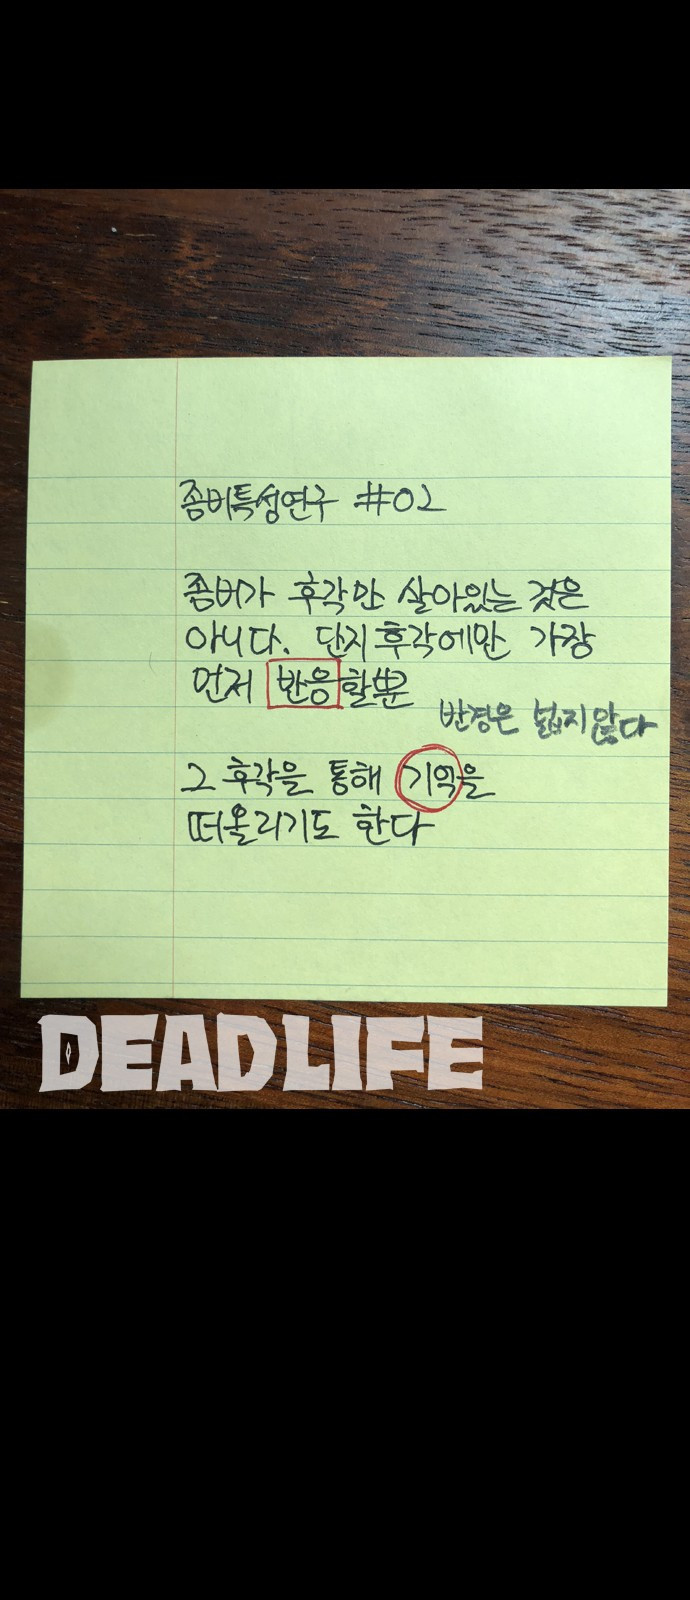 좀비특성연구 #02
좀비가 후각만 살아있는 것은
아니다. 단지 후각에만 가장
먼저 반응할뿐
반경은 넓지않다
그 후각을 통해 기억을
떠올리기도 한다
DEADLIFE